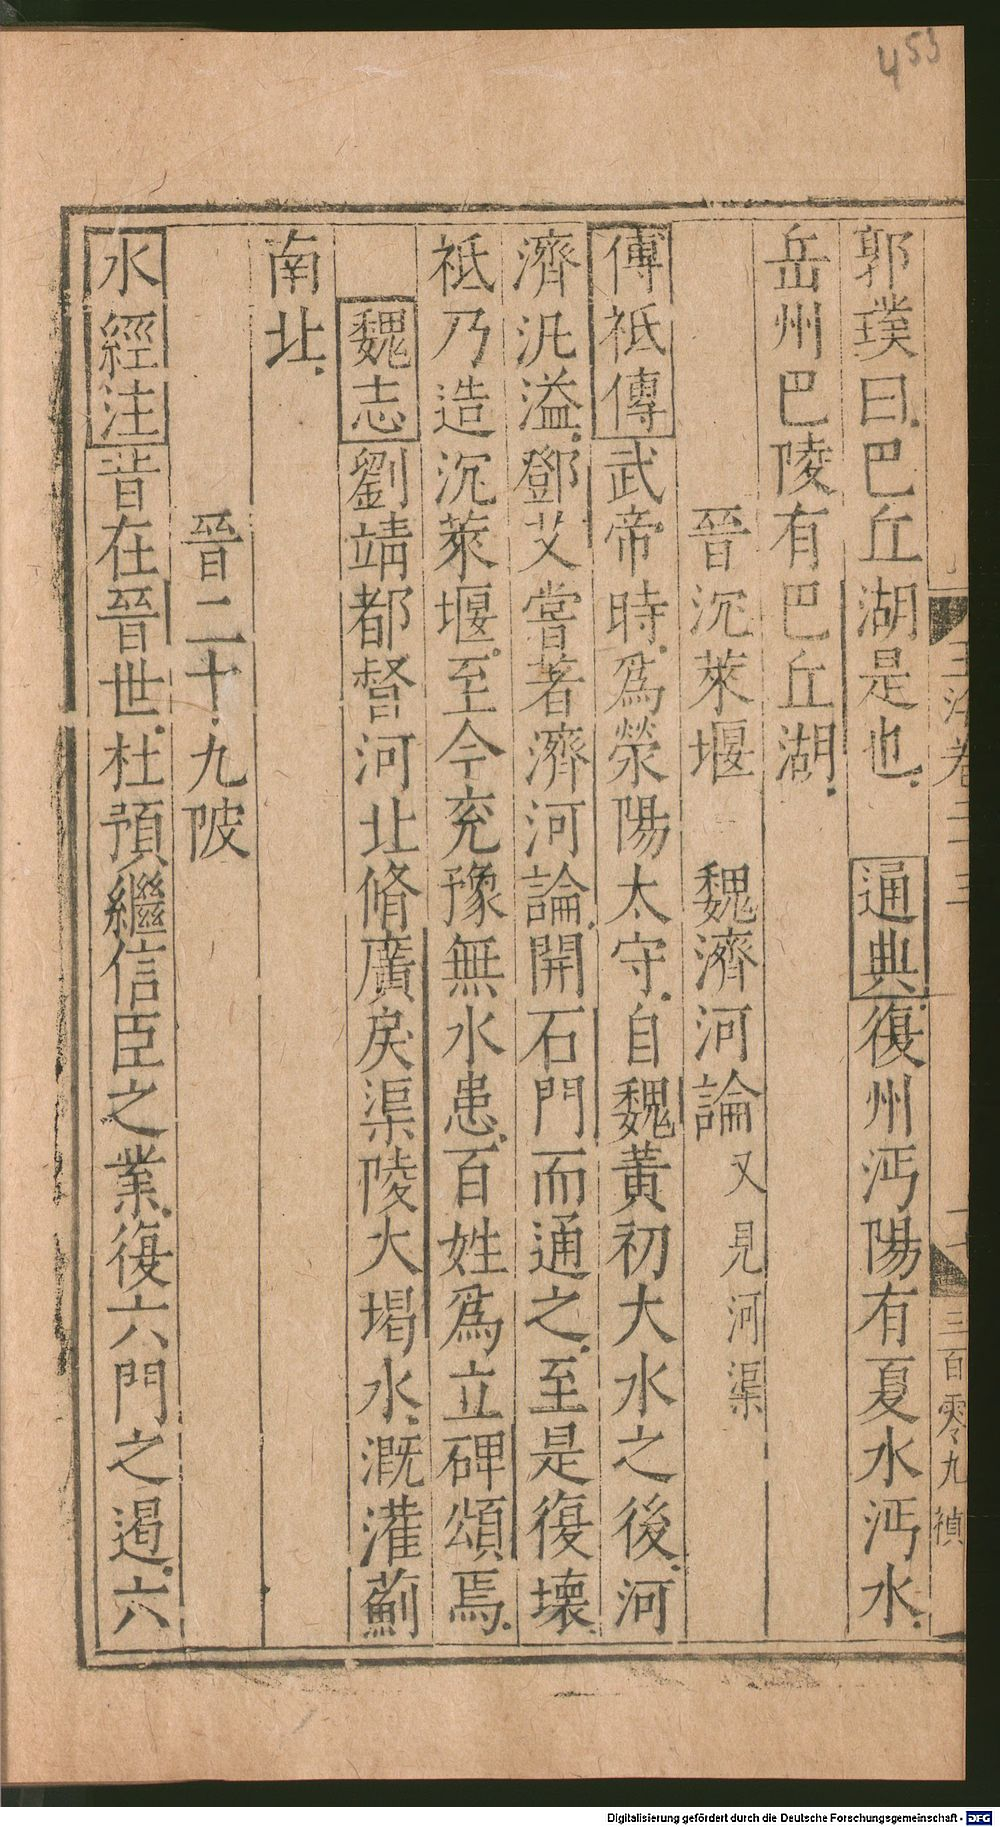 453
玉海卷二十三
三百零九 禎
郭璞曰巴丘湖是也 通典復州沔陽有夏水沔水
岳州巴陵有巴丘湖
晉沉萊堰 魏濟河論 又見河渠
傅祗傳武帝時爲滎陽太守自魏黃初大水之後河
濟汎溢鄧艾嘗著濟河論開石門而通之至是復壞
祗乃造沉萊堰至今兗豫無水患百姓爲立碑頌焉
魏志劉靖都督河北脩廣戾渠陵大堨水溉灌薊
南北
晉二十九陂
水經注昔在晉世杜預繼信臣之業復六門之遏六
Digitalisierung gefördert durch die Deutsche Forschungsgemeinschaft - DFG